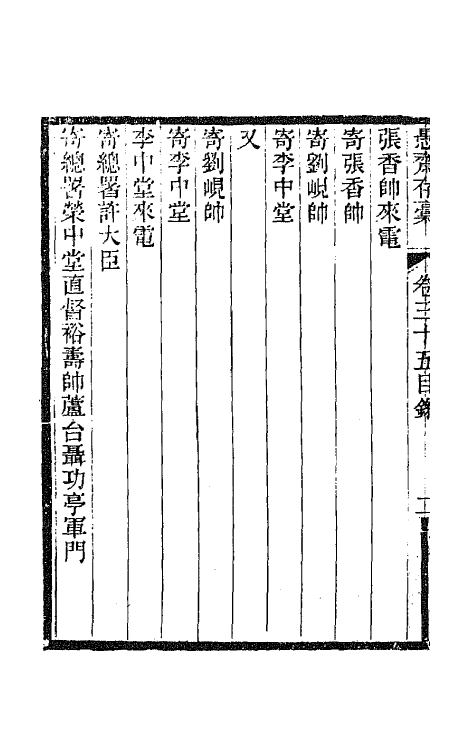 愚齋存稾 卷三十五目錄
張香帥來電
寄張香帥
寄劉峴帥
寄李中堂
又
寄劉峴帥
寄李中堂
李中堂來電
寄總署許大臣
寄總署榮中堂直督裕壽帥蘆台聶功亭軍門